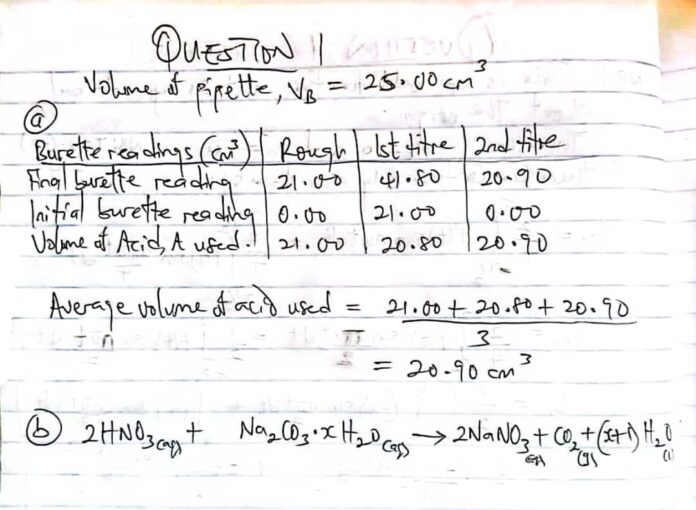 QUESTION 11
Volume of pipette, V_B = 25.00 cm³
(a)
Burette readings (cm³) | Rough | 1st titre | 2nd titre
Final burette reading | 21.00 | 41.80 | 20.90
Initial burette reading | 0.00 | 21.00 | 0.00
Volume of Acid, A used. | 21.00 | 20.80 | 20.90
Average volume of acid used = 21.00 + 20.80 + 20.90
3
= 20.90 cm³
(b) 2HNO₃(aq) + Na₂CO₃·xH₂O(aq) → 2NaNO₃(aq) + CO₂(g) + (x+1)H₂O(l)